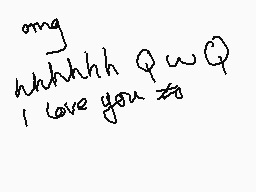 omg
hhhhhh QwQ
i love you